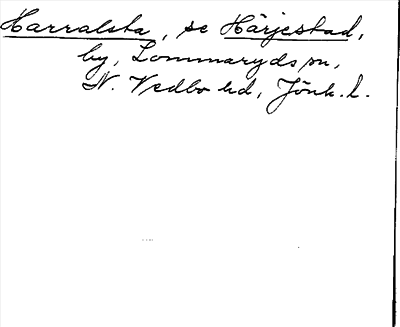 Harralsta, se Härjestad,
by, Lommaryds sn,
N. Vedbo hd, Jönk. l.